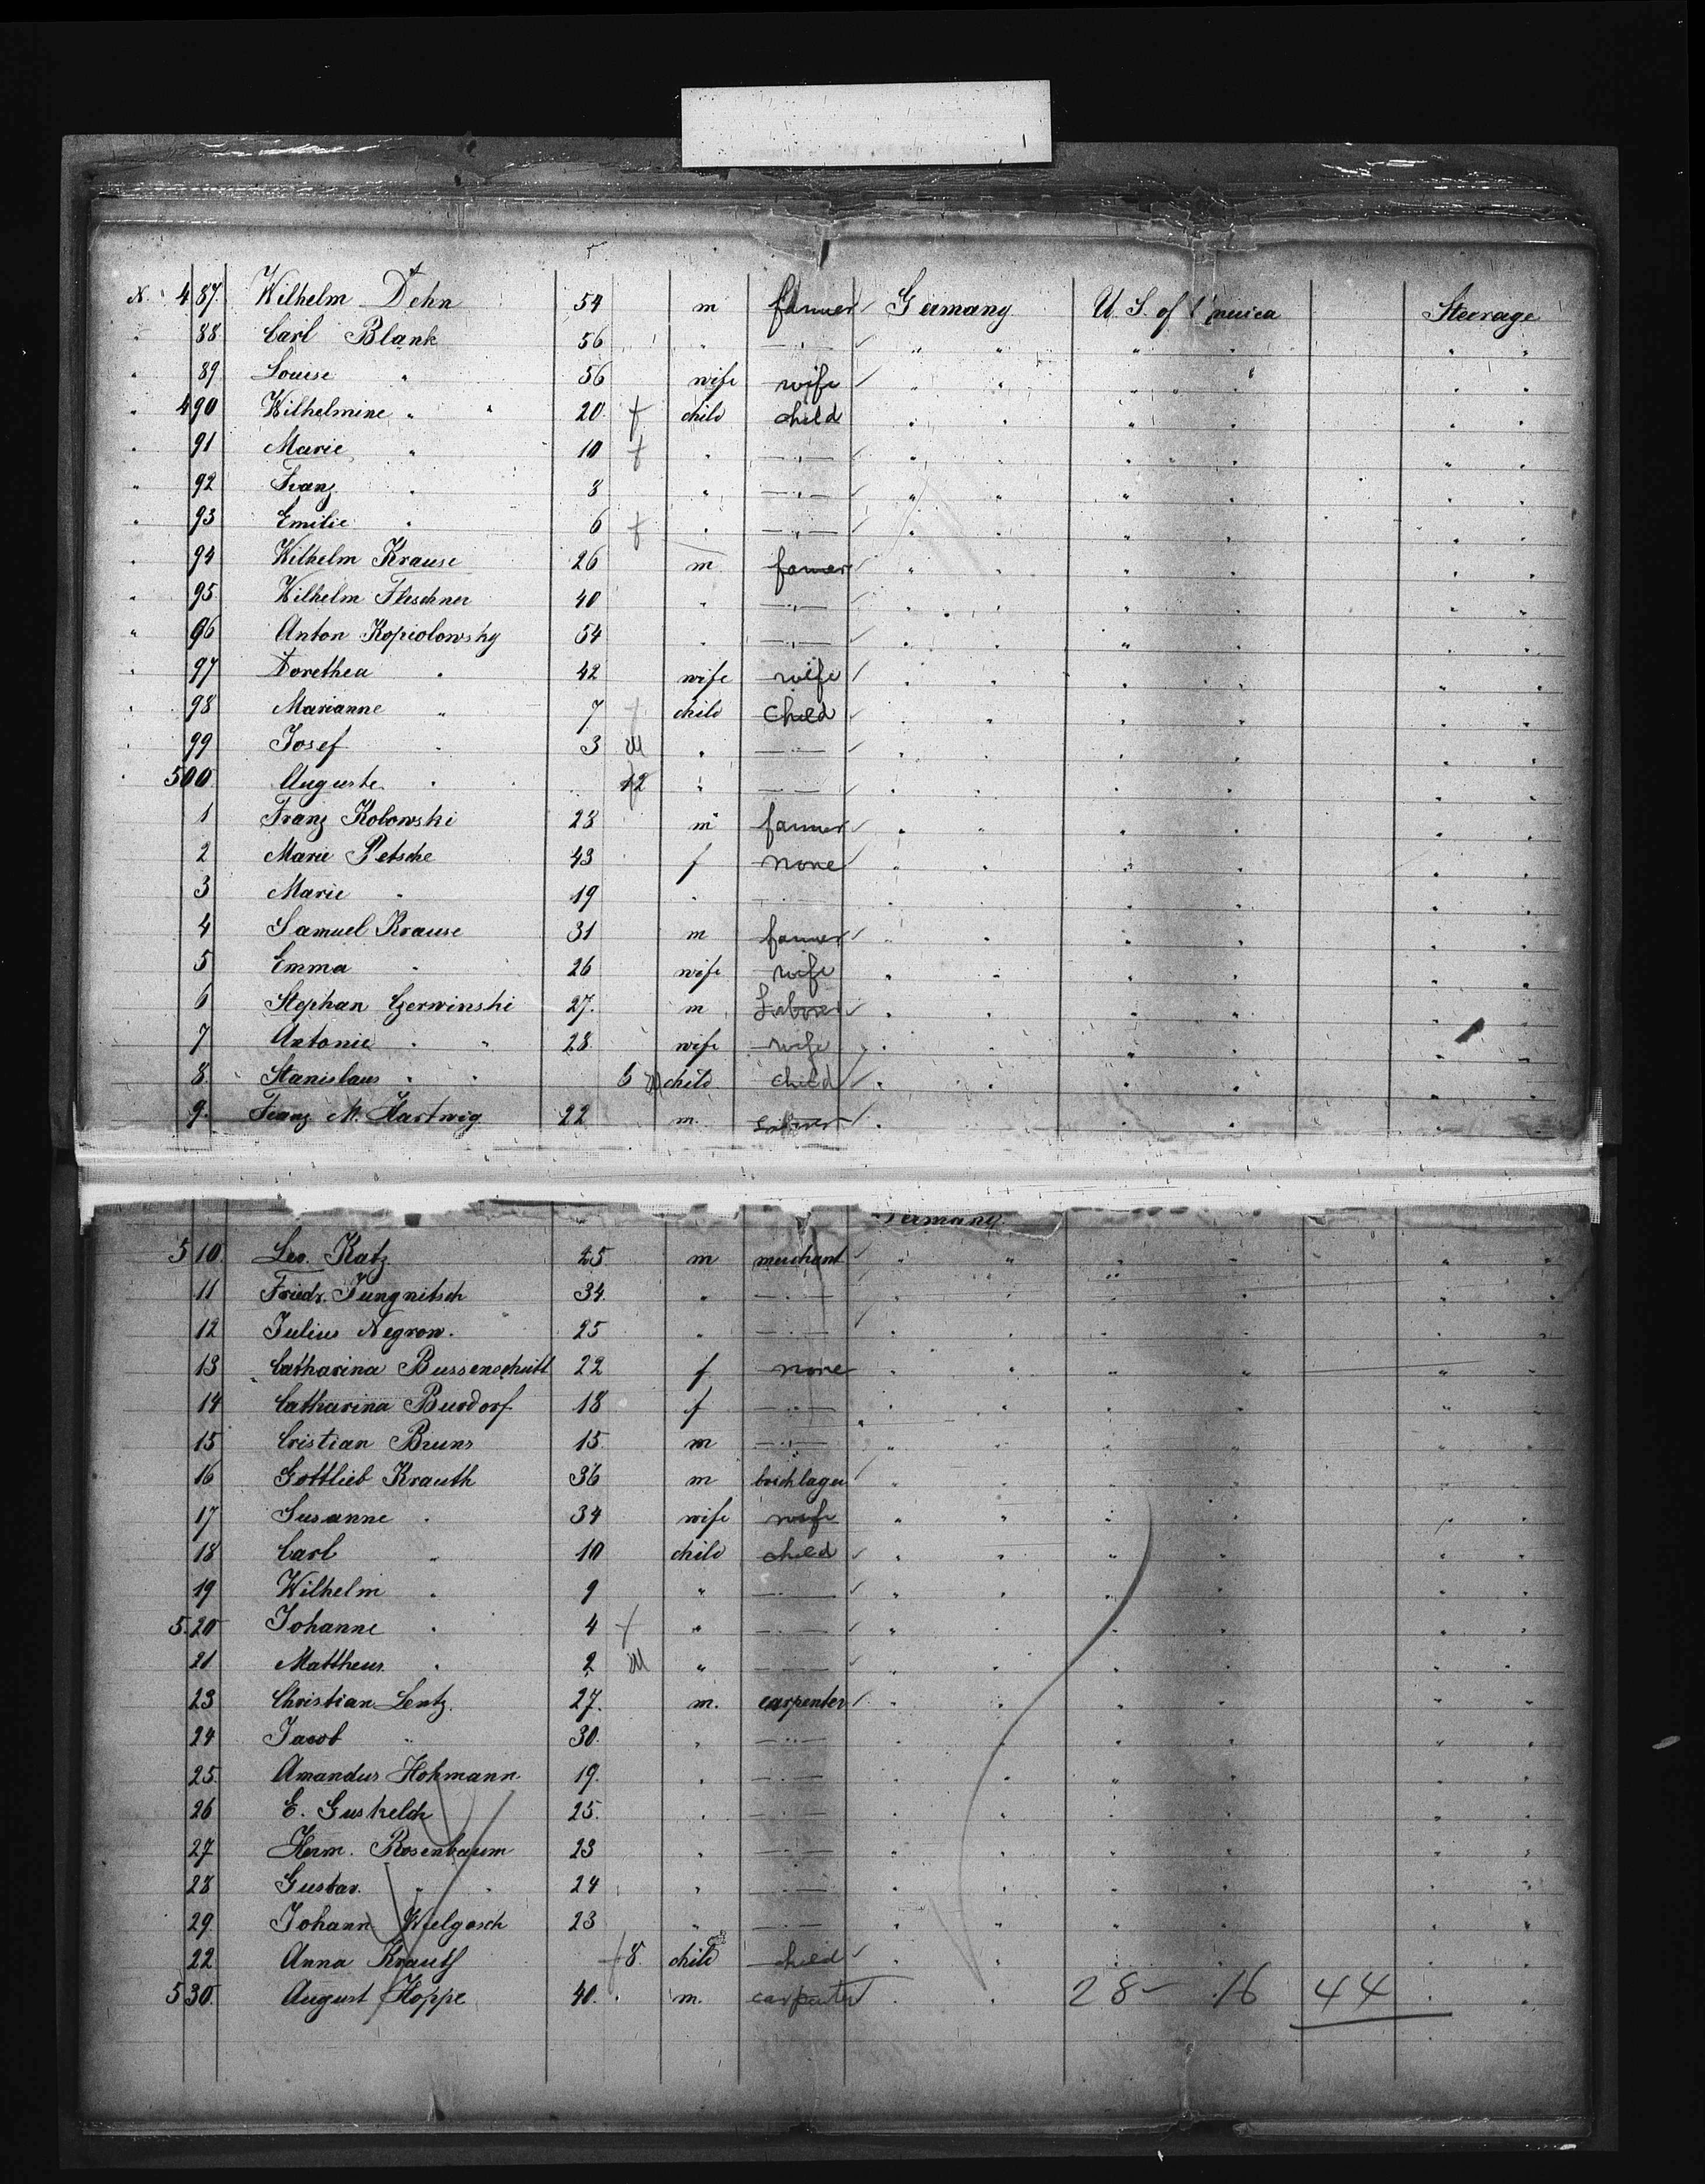 N. 487. Wilhelm Dehn 54 m farmer Germany U. S. of America Steerage
" 88. Carl Blank 56 " — " — " " " " " "
" 89 Louise " 56 wife wife " " " " " "
" 490 Wilhelmine " " 20. f child child " " " " " "
" 91 Marie " 10 f " — " — " " " " " "
" 92 Franz " 8 " — " — " " " " " "
" 93 Emilie " 6 f " — " — " " " " " "
" 94 Wilhelm Krause 26 m farmer " " " " " "
" 95. Wilhelm Fleschner 40 " — " — " " " " " "
" 96 Anton Kopiolowsky 54 " — " — " " " " " "
" 97 Dorethea " 42 wife wife " " " " " "
" 98 Marianne " 7 f child Child " " " " " "
" 99 Josef " 3 M " — " — " " " " " "
" 500. Auguste " 12 f " — " — " " " " " "
1 Franz Kolowski 23 m farmer " " " " " "
2 Marie Petsche 43 f none " " " " " "
3 Marie " 19 " " " " " " " "
4 Samuel Krause 31 m farmer " " " " " "
5 Emma " 26 wife wife " " " " " "
6 Stephan Czerwinski 27. m Laborer " " " " " "
7 Antonie " " 28. wife wife " " " " " "
8. Stanislaus " " 6 M child child " " " " " "
9. Franz M. Hartwig 22 m. Laborer " " " " "
Germany
510. Leo. Katz 25 m merchant " " " " " "
11 Friedr. Jungnitsch 34. " — " — " " " " " "
12 Julius Negrow. 25 " — " — " " " " " "
13 Catharina Bussenschütt 22 f none " " " " " "
14 Catharina Burdorf 18 f — " — " " " " " "
15 Cristian Bruns 15. m — " — " " " " " "
16 Gottlieb Krauth 36 m " " " " " "
17 Susanne " 34 wife wife " " " " " "
18 Carl " 10 child child " " " " " "
19 Wilhelm " 9 " — " — " " " " " "
5.20 Johanne " 4 f " — " — " " " " " "
21 Mattheus " 2 M " — " — " " " " " "
23 Christian Lentz. 27. m. carpenter " " " " " "
24 Jacob " 30. " — " — " " " " " "
25. Amandus Hohmann 19. " — " — " " " " " "
26 E. Guskelch 25. " — " — " " " " " "
27 Herm. Rosenbaum 23 " — " — " " " " " "
28 Gustav. " " 24 " — " — " " " " " "
29. Johann Wielgosch 23 " — " — " " " " " "
22 Anna Krauth f 8. child child " " " " " "
530. August Hoppe 40. m. carpenter " " 28 - 16 44 " "